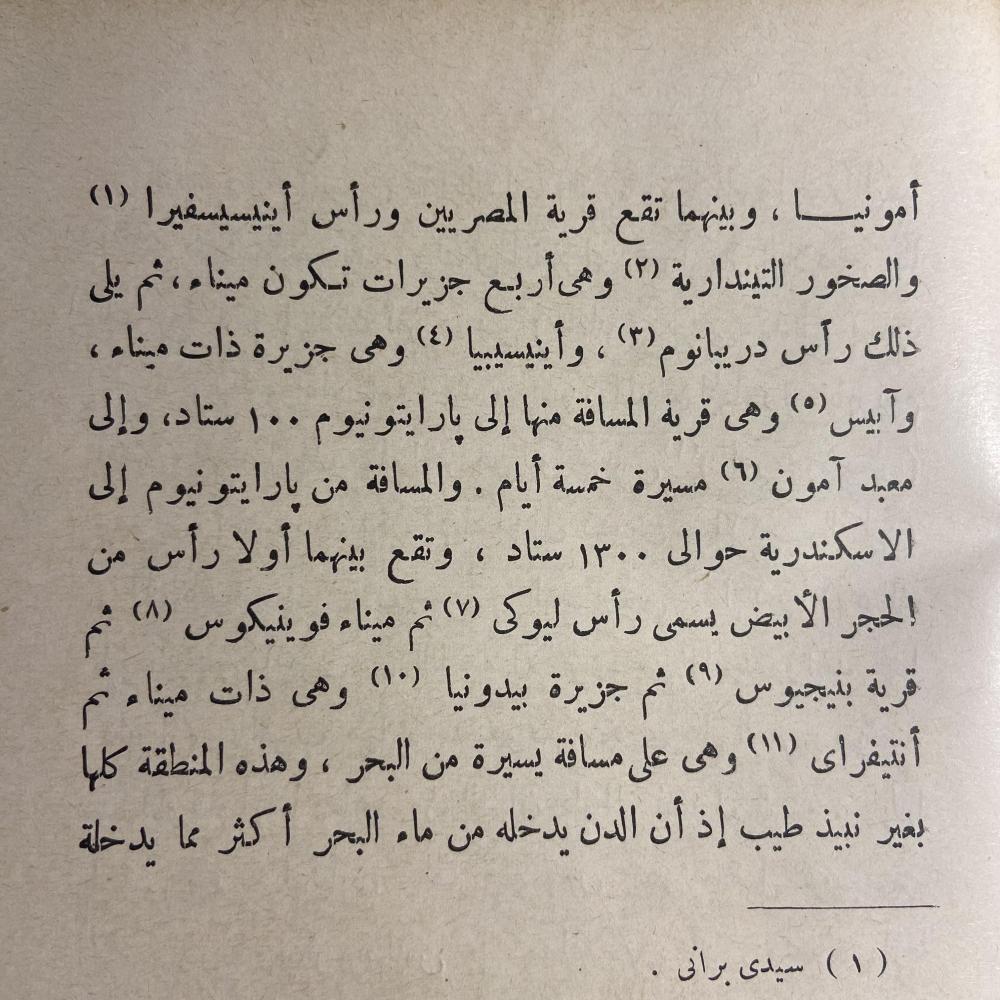 أمونيـــا ، وبينهما تقع قرية المصريين ورأس أينيسيسفيرا (١)
والصخور التيندارية (٢) وهى أربع جزيرات تكون ميناء ، ثم يلى
ذلك رأس دريبانوم (٣) ، وأينيسيبيا (٤) وهى جزيرة ذات ميناء ،
وآبيس (٥) وهى قرية المسافة منها إلى پارايتونيوم ١٠٠ ستاد، وإلى
معبد آمون (٦) مسيرة خمسة أيام . والمسافة من پارايتونيوم إلى
الاسكندرية حوالى ١٣٠٠ ستاد ، وتقع بينهما أولا رأس من
الحجر الأبيض يسمى رأس ليوكى (٧) ثم ميناء فوينيكوس (٨) ثم
قرية بنيجيوس (٩) ثم جزيرة بيدونيا (١٠) وهى ذات ميناء ثم
أنتيفراى (١١) وهى على مسافة يسيرة من البحر ، وهذه المنطقة كلها
بغير نبيذ طيب إذ أن الدن يدخله من ماء البحر أكثر مما يدخلة
( ١ ) سيدى برانى .